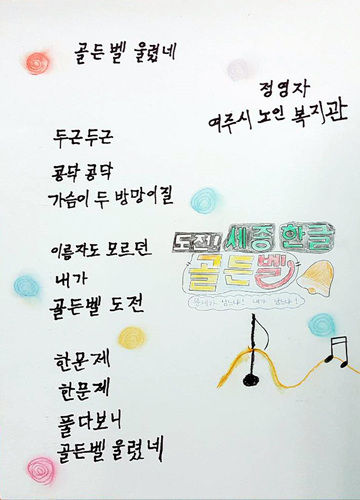 골든 벨 울렸네
정영자
여주시 노인 복지관
두근두근
콩닥 콩닥
가슴이 두 방망이질
이름자도 모르던
내가
골든벨 도전
한문제
한문제
풀다보니
골든벨 울렸네
도전!
세종 한글
골든벨